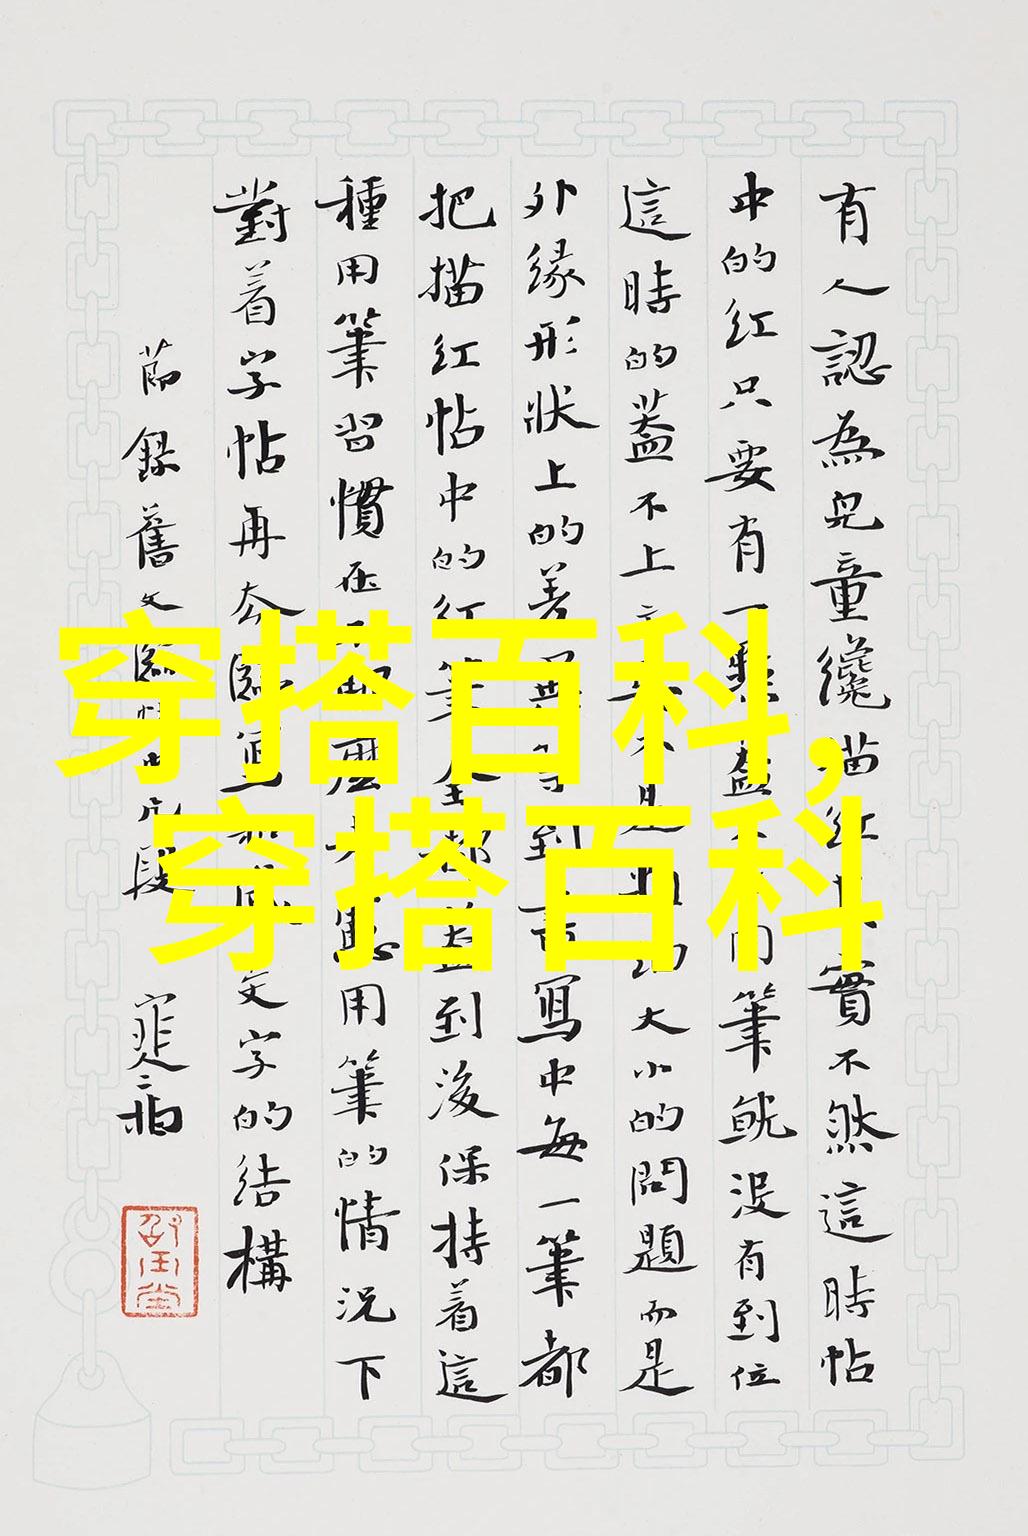 有人認為兒童纔描紅實不然這時帖
中的紅只要有一蓋筆就沒有到位
這時的蓋不上大小的問題而是
外緣形狀上的差異等到書寫中每一筆都
把描紅帖中的紅筆全都蓋到後保持着這
種用筆習慣用筆的情況下
對着字帖再去臨寫文字的結構
節錄舊文臨段
穿搭百科,
穿搭百科